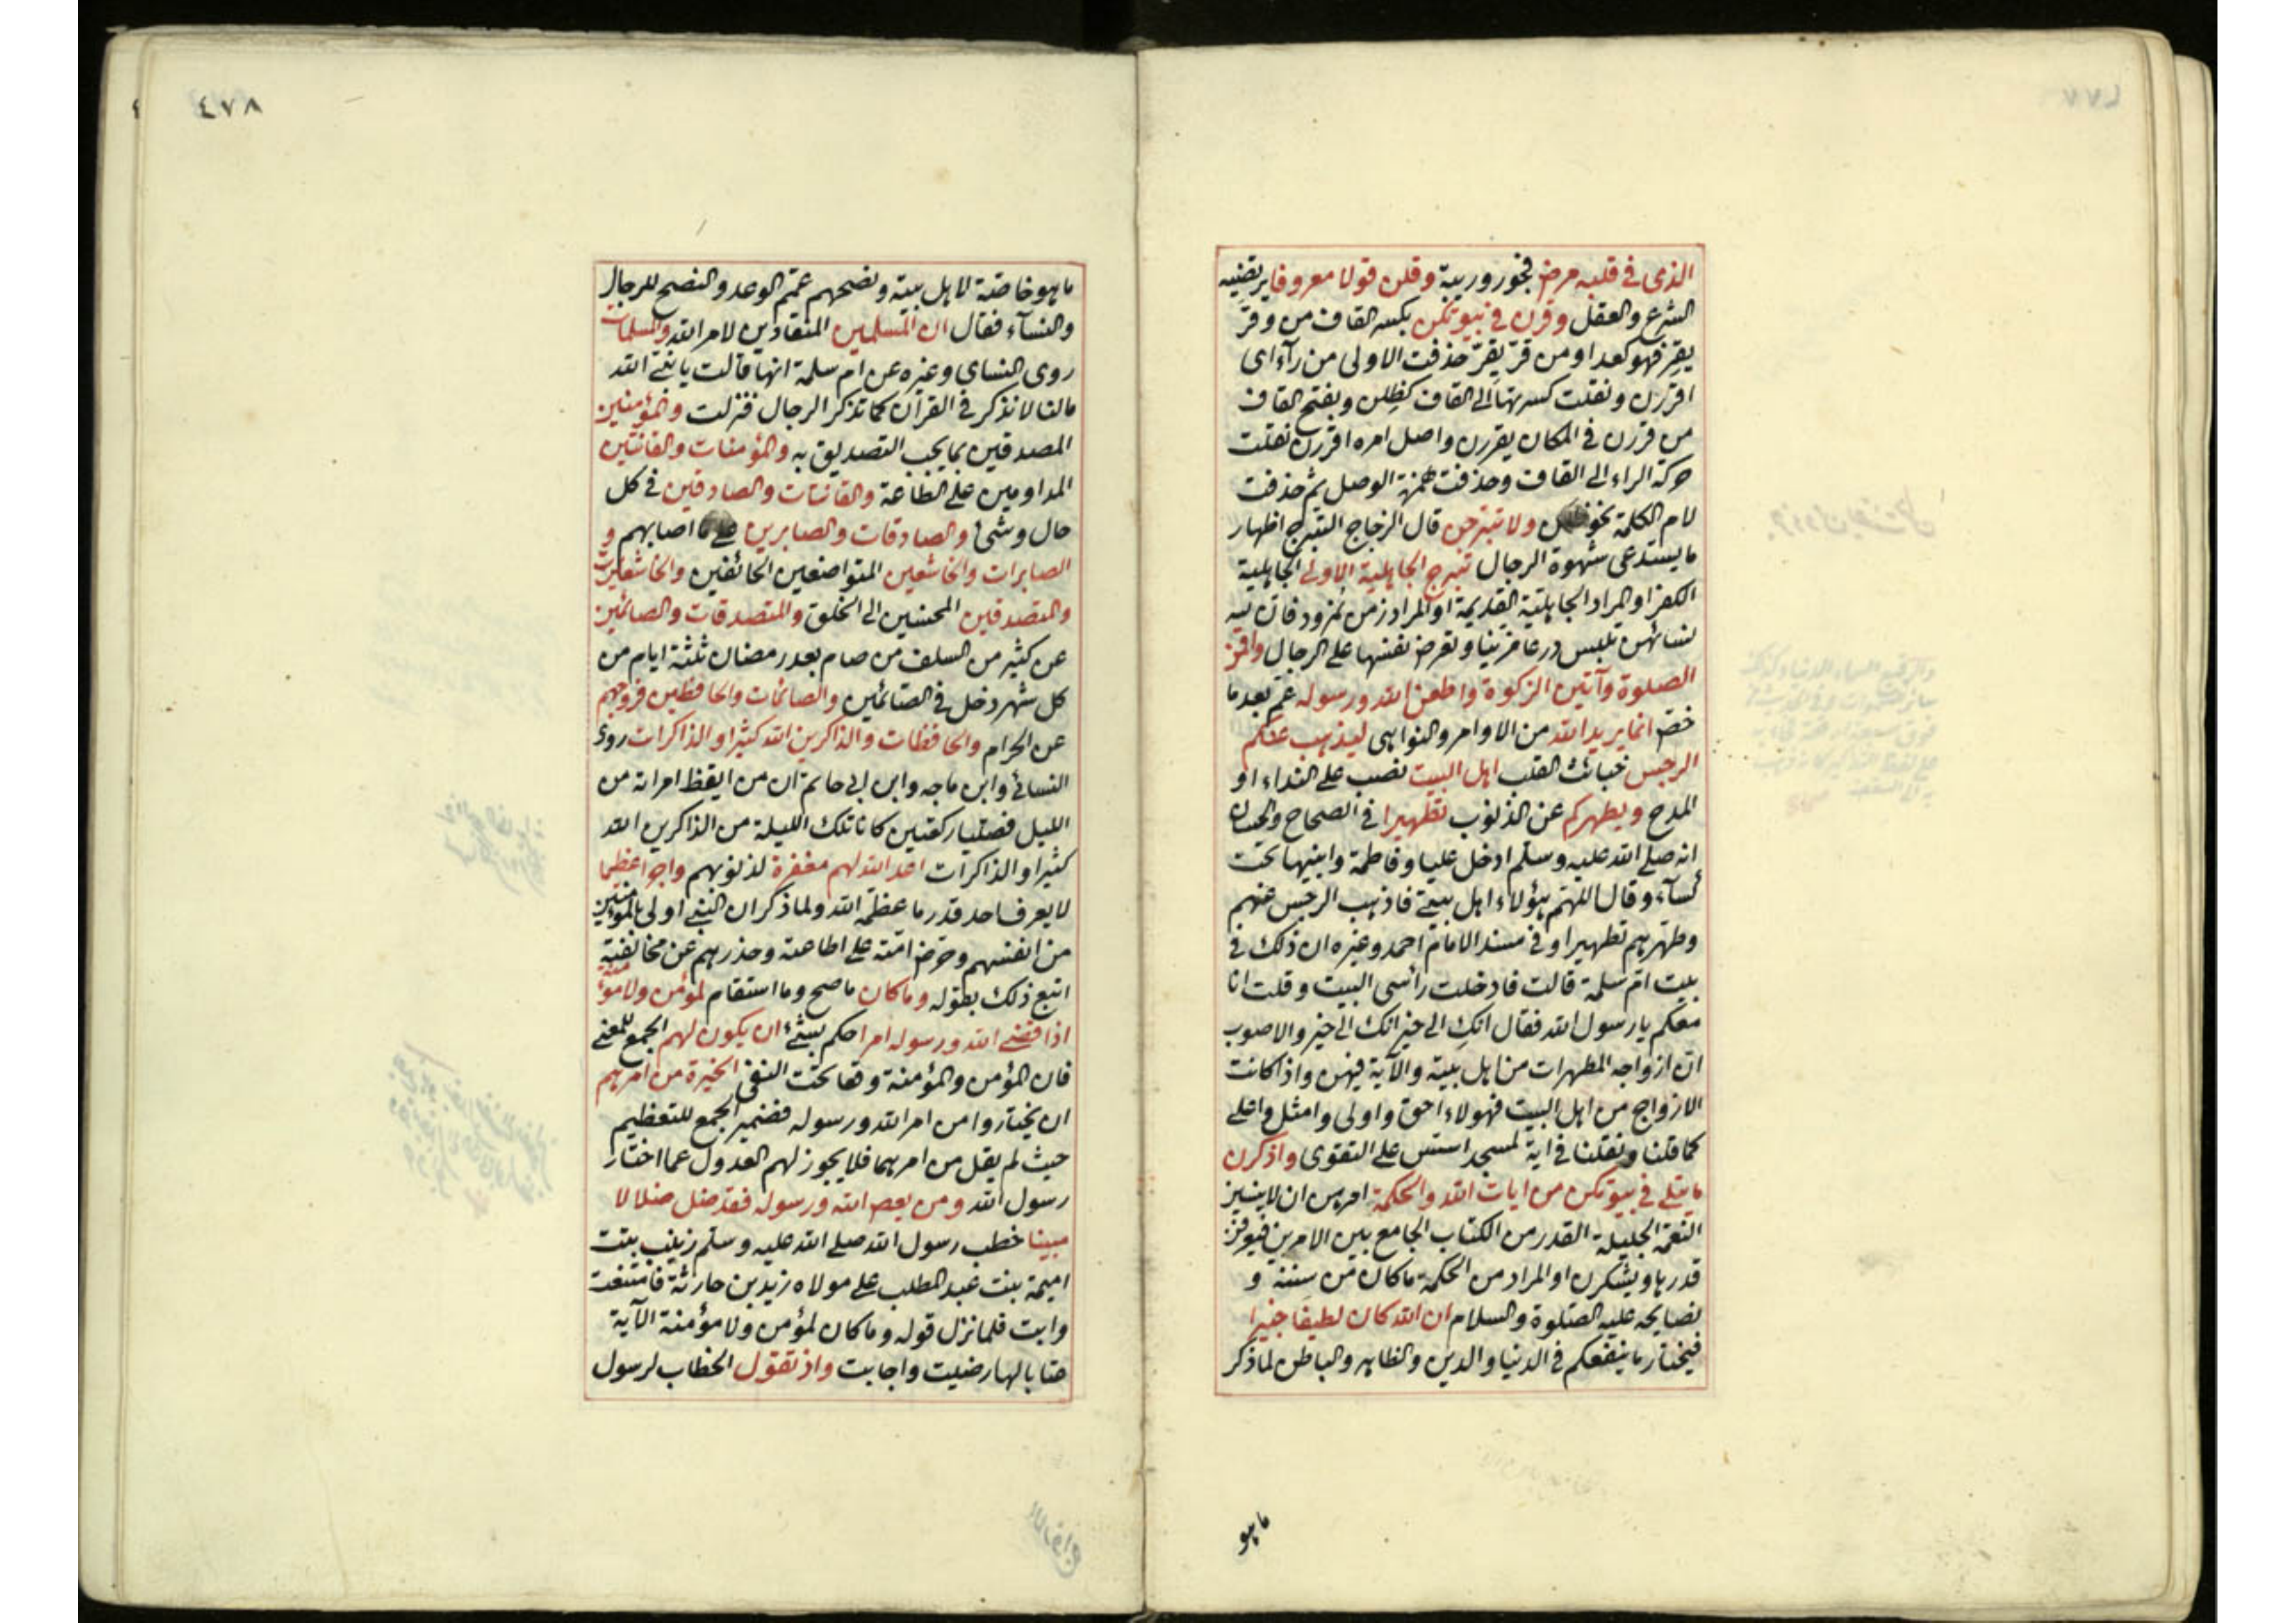 الذى فى قلبه مرض فجور وريبة وقلن قولا معروفا يرتضيه
الشرع والعقل وقرن فى بيوتكن بكسر القاف من وقر
يقر فهو كعد او من قر يقر حذفت الاولى من رآء اى
اقررن ونقلت كسرتها الى القاف كظلن وبفتح القاف
من قررن فى المكان يقررن واصل امره اقررن نقلت
حركة الراء الى القاف وحذفت همزة الوصل ثم حذفت
لام الكلمة نحو ولا تبرجن قال الزجاج التبرج اظهار
ما يستدعى شهوة الرجال تبرج الجاهلية الاولى الجاهلية
الكفر او المراد الجاهلية القديمة او المراد زمن نمرود فان
لنسائهن تلبس درعا وتعرض نفسها على الرجال واقمن
الصلوة وآتين الزكوة واطعن الله ورسوله عم بعد ما
خص انما يريد الله من الاوامر والنواهى ليذهب عنكم
الرجس خبائث القلب اهل البيت نصب على النداء او
المدح ويطهركم عن الذنوب تطهيرا فى الصحاح والحسان
انه صلى الله عليه وسلم ادخل عليا وفاطمة وابنيها تحت
كسآء وقال اللهم هؤلاء اهل بيتى فاذهب الرجس عنهم
وطهرهم تطهيرا وفى مسند الامام احمد وغيره ان ذلك فى
بيت ام سلمة قالت فادخلت رأسى البيت وقلت انا
معكم يا رسول الله فقال انك الى خير انك الى خير والاصوب
ان ازواجه المطهرات من اهل بيته والآية فيهن واذا كانت
الازواج من اهل البيت فهولاء احق واولى وامثل واعلى
كما قلنا ونقلنا فى اية لمسجد اسس على التقوى واذكرن
ما يتلى فى بيوتكن من ايات الله والحكمة امرهن ان لا ينسين
النعمة الجليلة القدر من الكتاب الجامع بين الامرين
قدرها ويشكرن او المراد من الحكمة ما كان من سننه و
نصايحه عليه الصلوة والسلام ان الله كان لطيفا خبيرا
فيختار ما ينفعكم فى الدنيا والدين والظاهر والباطن لما ذكر
ما هو
٤٧٨
ما هو خاصة لاهل بيته ونصحهم عمم الوعد والنصح للرجال
والنسآء فقال ان المسلمين المنقادين لامر الله والمسلمات
روى النساى وغيره عن ام سلمة انها قالت يا نبى الله
مالنا لا نذكر فى القرآن كما تذكر الرجال فنزلت والمؤمنين
المصدقين بما يجب التصديق به والمؤمنات والقانتين
المداومين على الطاعة والقانتات والصادقين فى كل
حال وشئ والصادقات والصابرين على ما اصابهم و
الصابرات والخاشعين المتواضعين الخائفين والخاشعات
والمتصدقين المحسنين الى الخلق والمتصدقات والصائمين
عن كثير من السلف من صام بعد رمضان ثلثة ايام من
كل شهر دخل فى الصائمين والصائمات والحافظين فروجهم
عن الحرام والحافظات والذاكرين الله كثيرا والذاكرات روى
النسائى وابن ماجه وابن ابى حاتم ان من ايقظ امراته من
الليل فصليا ركعتين كانا تلك الليلة من الذاكرين الله
كثيرا والذاكرات اعد الله لهم مغفرة لذنوبهم واجرا عظيما
لا يعرف احد قدر ما عظمه الله ولما ذكر ان النبى اولى بالمؤمنين
من انفسهم وحرض امته على اطاعته وحذرهم عن مخالفته
اتبع ذلك بقوله وما كان ما صح وما استقام لمؤمن ولا مؤمنة
اذا قضى الله ورسوله امرا حكم بشئ ان يكون لهم الجمع للمعنى
فان المؤمن والمؤمنة وقعا تحت النفى الخيرة من امرهم
ان يختاروا من امر الله ورسوله فضمير الجمع للتعظيم
حيث لم يقل من امرهما فلا يجوز لهم العدول عما اختار
رسول الله ومن يعص الله ورسوله فقد ضل ضلالا
مبينا خطب رسول الله صلى الله عليه وسلم زينب بنت
اميمة بنت عبد المطلب على مولاه زيد بن حارثة فامتنعت
وابت فلما نزل قوله وما كان لمؤمن ولا مؤمنة الآية
رضيت واجابت واذ تقول الخطاب لرسول